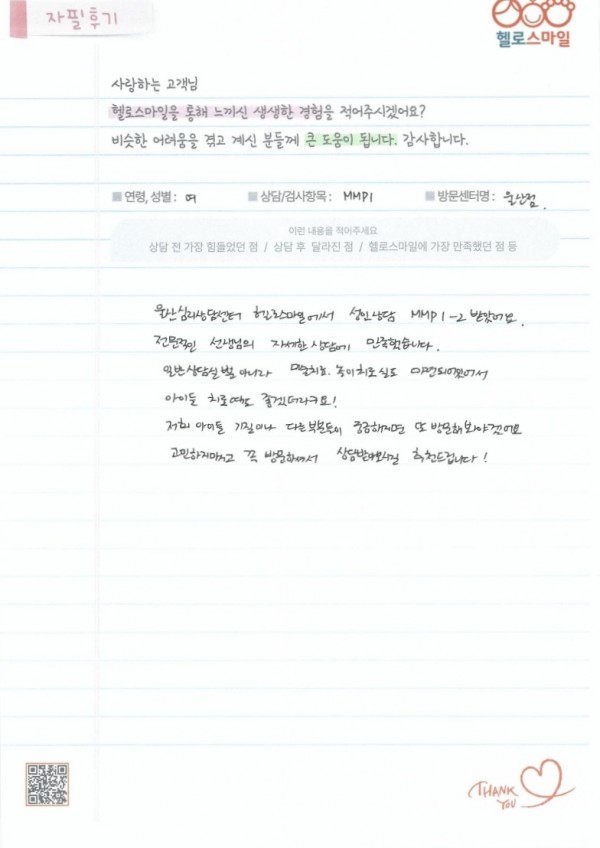 자필후기
헬로스마일
사랑하는 고객님
헬로스마일을 통해 느끼신 생생한 경험을 적어주시겠어요?
비슷한 어려움을 겪고 계신 분들께 큰 도움이 됩니다. 감사합니다.
연령, 성별 : 여 상담/검사항목 : MMPI 방문센터명 : 울산점.
이런 내용을 적어주세요
상담 전 가장 힘들었던 점 / 상담 후 달라진 점 / 헬로스마일에 가장 만족했던 점 등
울산심리상담센터 헬로스마일에서 성인상담 MMPI-2 받았어요.
전문적인 선생님의 자세한 상담에 만족했습니다.
일반상담실 뿐 아니라 미술치료. 놀이치료실도 마련되어있어서
아이들 치료에도 좋겠더라구요!
저희 아이들 기질이나 다른부분들이 궁금해지면 또 방문해봐야겠어요
고민하지마시고 꼭 방문하셔서 상담받아보시길 추천드립니다!
THANK YOU